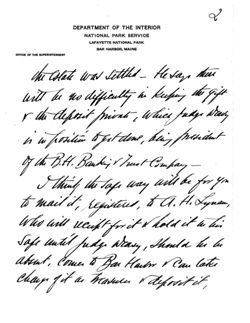 2
DEPARTMENT OF THE INTERIOR
NATIONAL PARK SERVICE
LAFAYETTE NATIONAL PARK
BAR HARBOR, MAINE
OFFICE OF THE SUPERINTENDENT
the estate was settled – He says there
will be no difficulty in keeping the gift
& the deposit private, which Judge Deasy
is in position to get done, being president
of the B.H. Banking & Trust Company –
I think the safe way will be for you
to mail it, registered, to A. H. Lynam,
who will receipt for it & hold it in his
safe until Judge Deasy, should he be
absent, comes to Bar Harbor & can take
charge of it as Treasurer & deposit it,